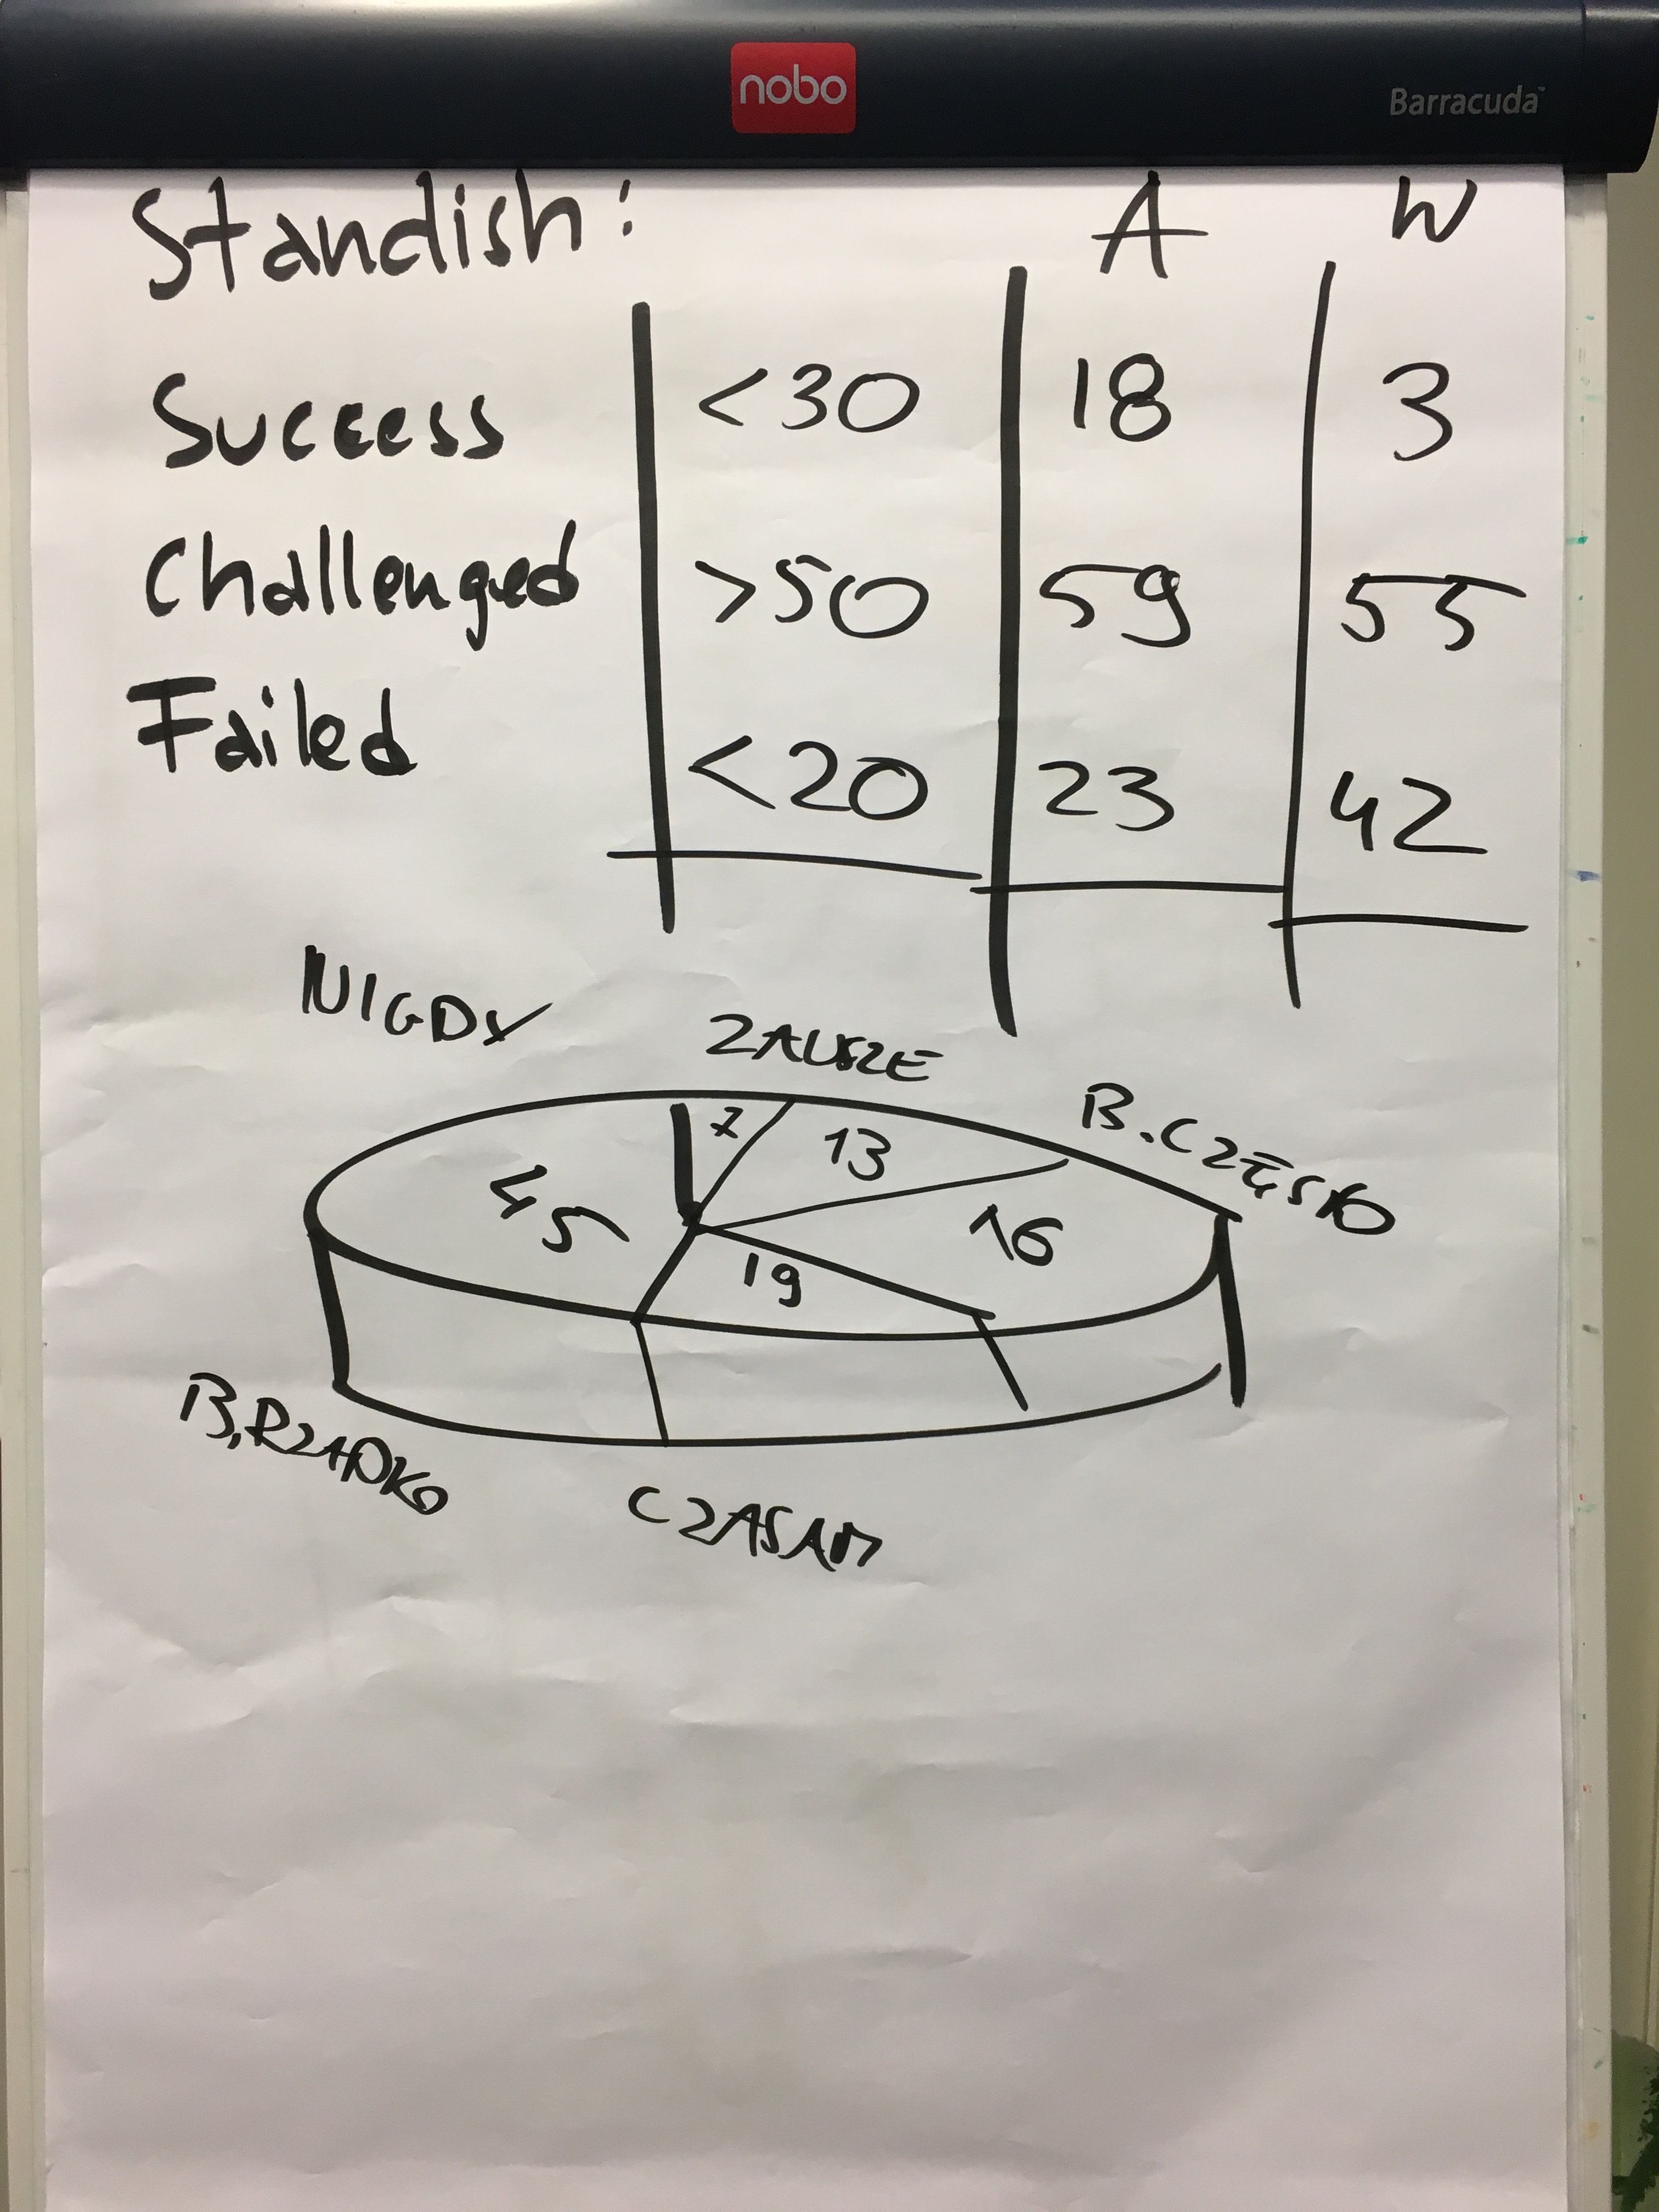 nobo
Barracuda
Standish: A W
Success <30 18 3
Challenged >50 59 55
Failed <20 23 42
NIGDY
ZAWSZE
B.CZĘSTO
7 13
45 16
19
B.RZADKO
CZASAM